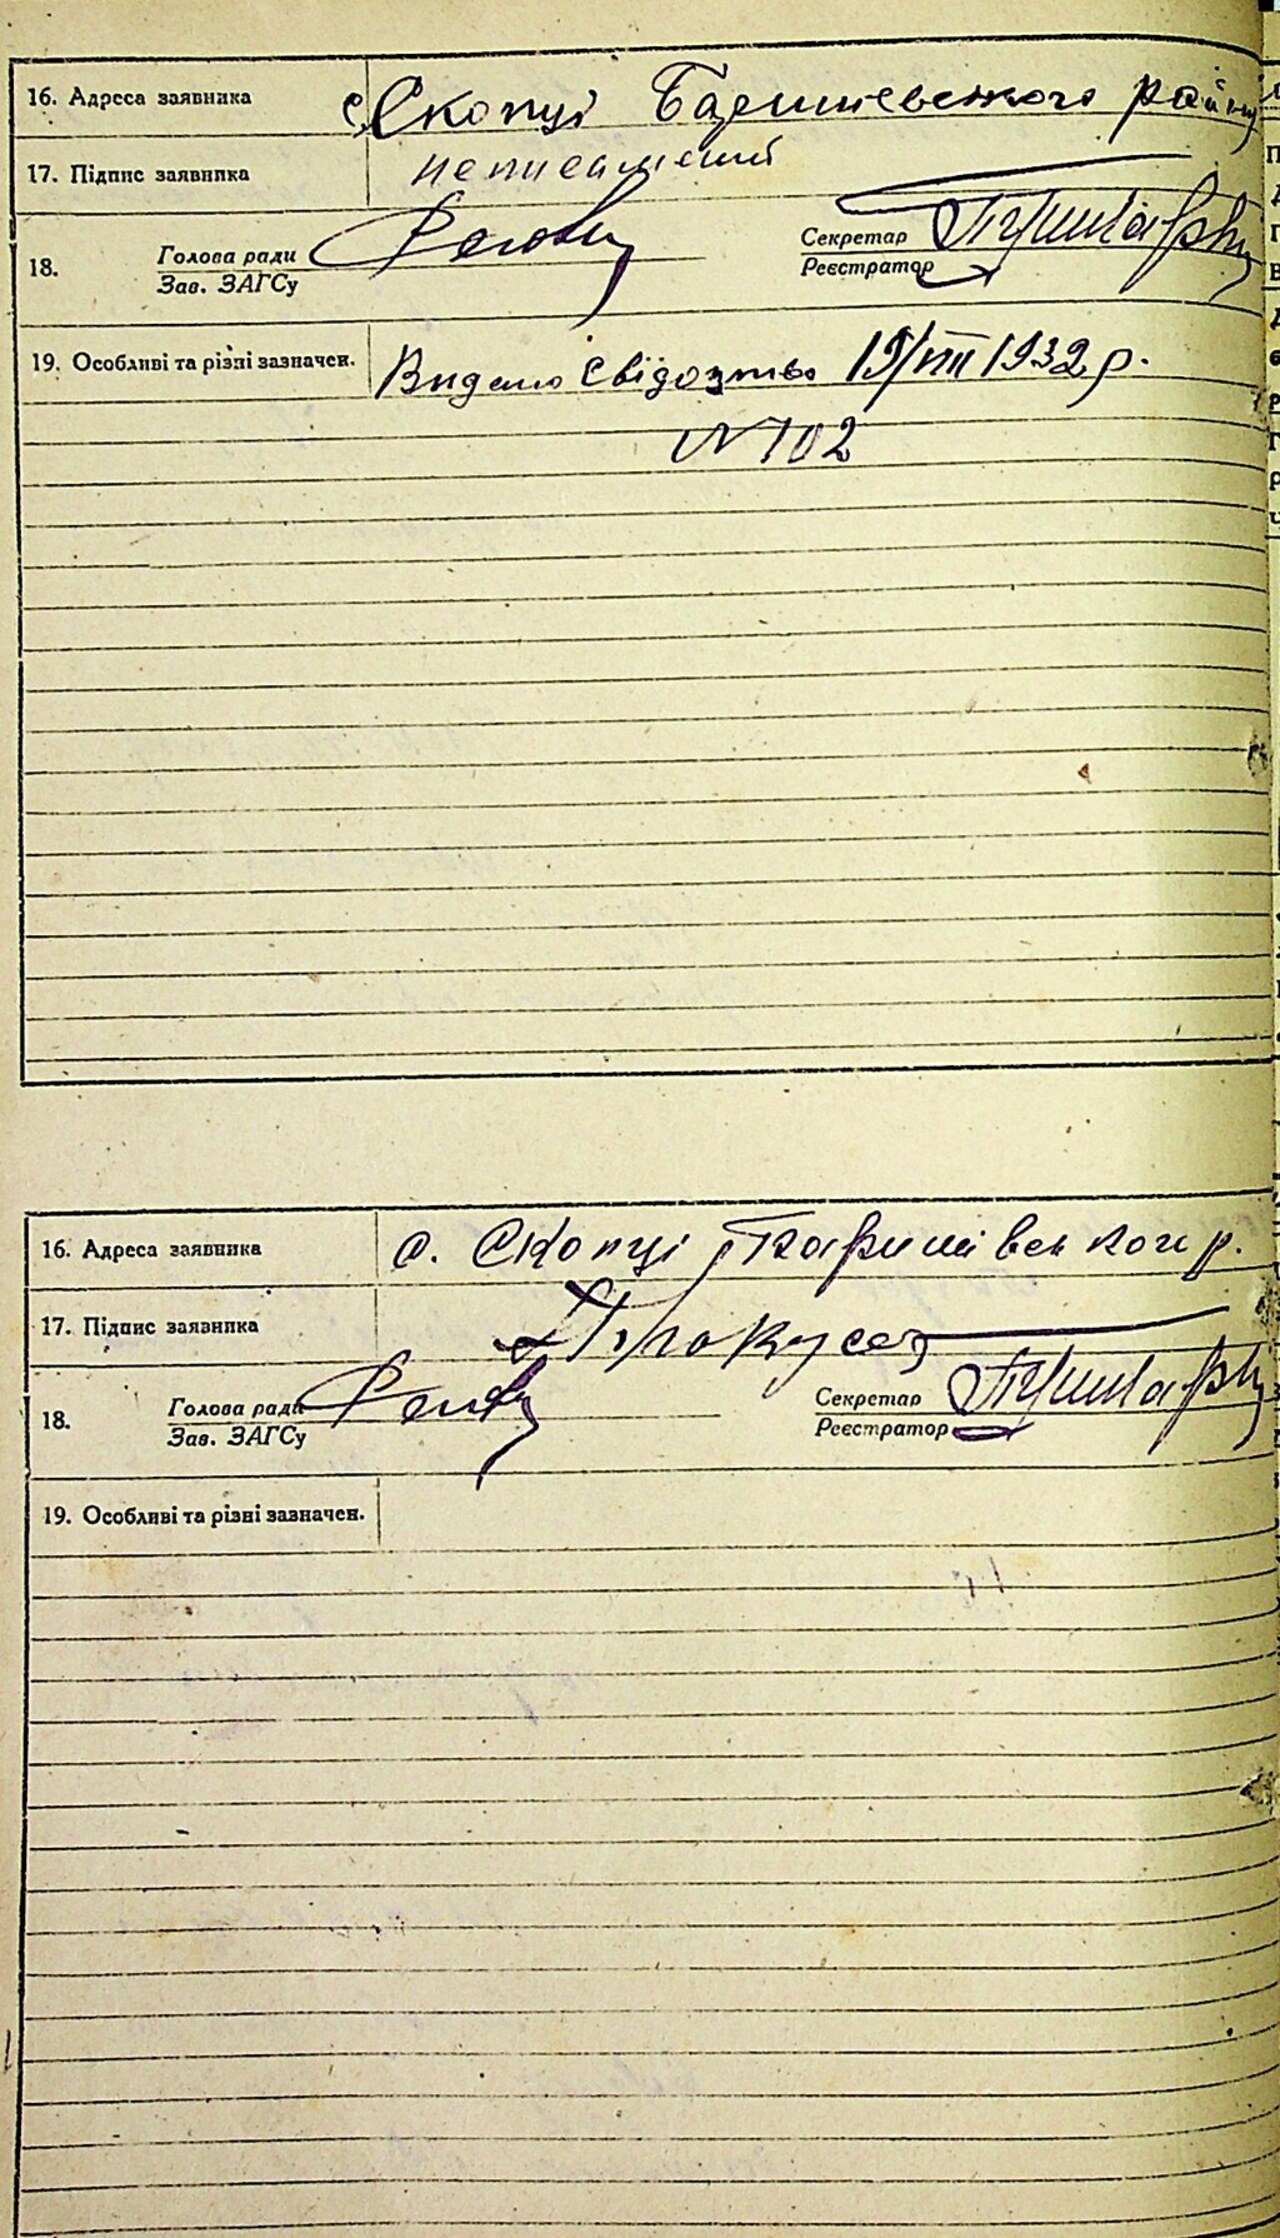 16. Адреса заявника с. Скопці Баришевського району
17. Підпис заявника неписьмений
18. Голова ради
Зав. ЗАГСу
Секретар
Реєстратор
19. Особливі та різні зазначен. Видано свідоцтво 19/VIII 1932 р.
N 102
16. Адреса заявника с. Скопці Баришівського р.
17. Підпис заявника
18. Голова ради
Зав. ЗАГСу
Секретар
Реєстратор
19. Особливі та різні зазначен.